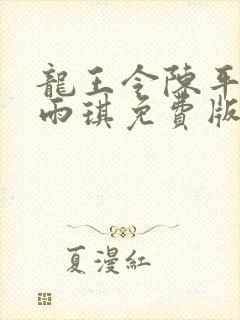 龍王令陳平
雨琪免費版
夏漫紅